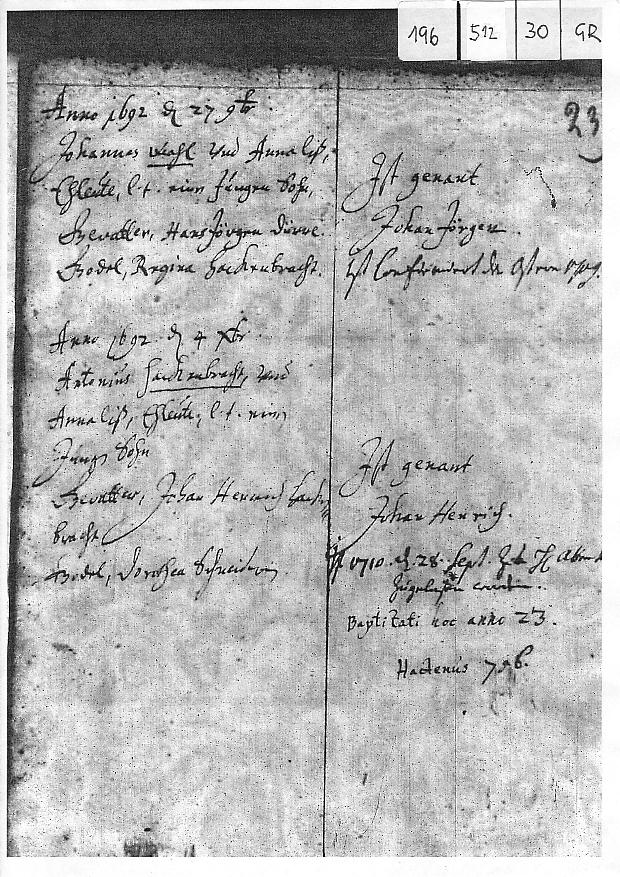 196 512 30 GR
23
Anno 1692 d 27 9br
Johannes Wahl und Anna liß,
Ehleute, l. t. einen Jungen Sohn,
Gevatter, Hans Jörgen
Godel, Regina Hackenbracht.
Ist genant
Johan Jörgen.
Ist Confirmirt de Ostern
Anno 1692 d 4 Xbr
Antonius Hackenbracht, und
Anna liß, Ehleute, l. t. einen
Jungen Sohn
Gevatter, Johan Henrich Hacken=
bracht
Godel, Dorothea Schneiderin
Ist genant
Johan Henrich.
1710. d. 28. Sept. H Abend
Zugelaßen worden.
Baptizati hoc anno 23.
Hactenus 796.